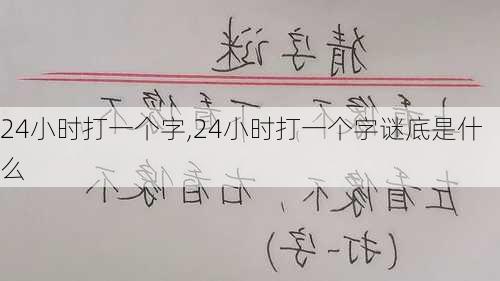 猜字谜
上看像不,下看像不
24小时打一个字,24小时打一个字谜底是什
么
左看像不,右看像不
(打一字)